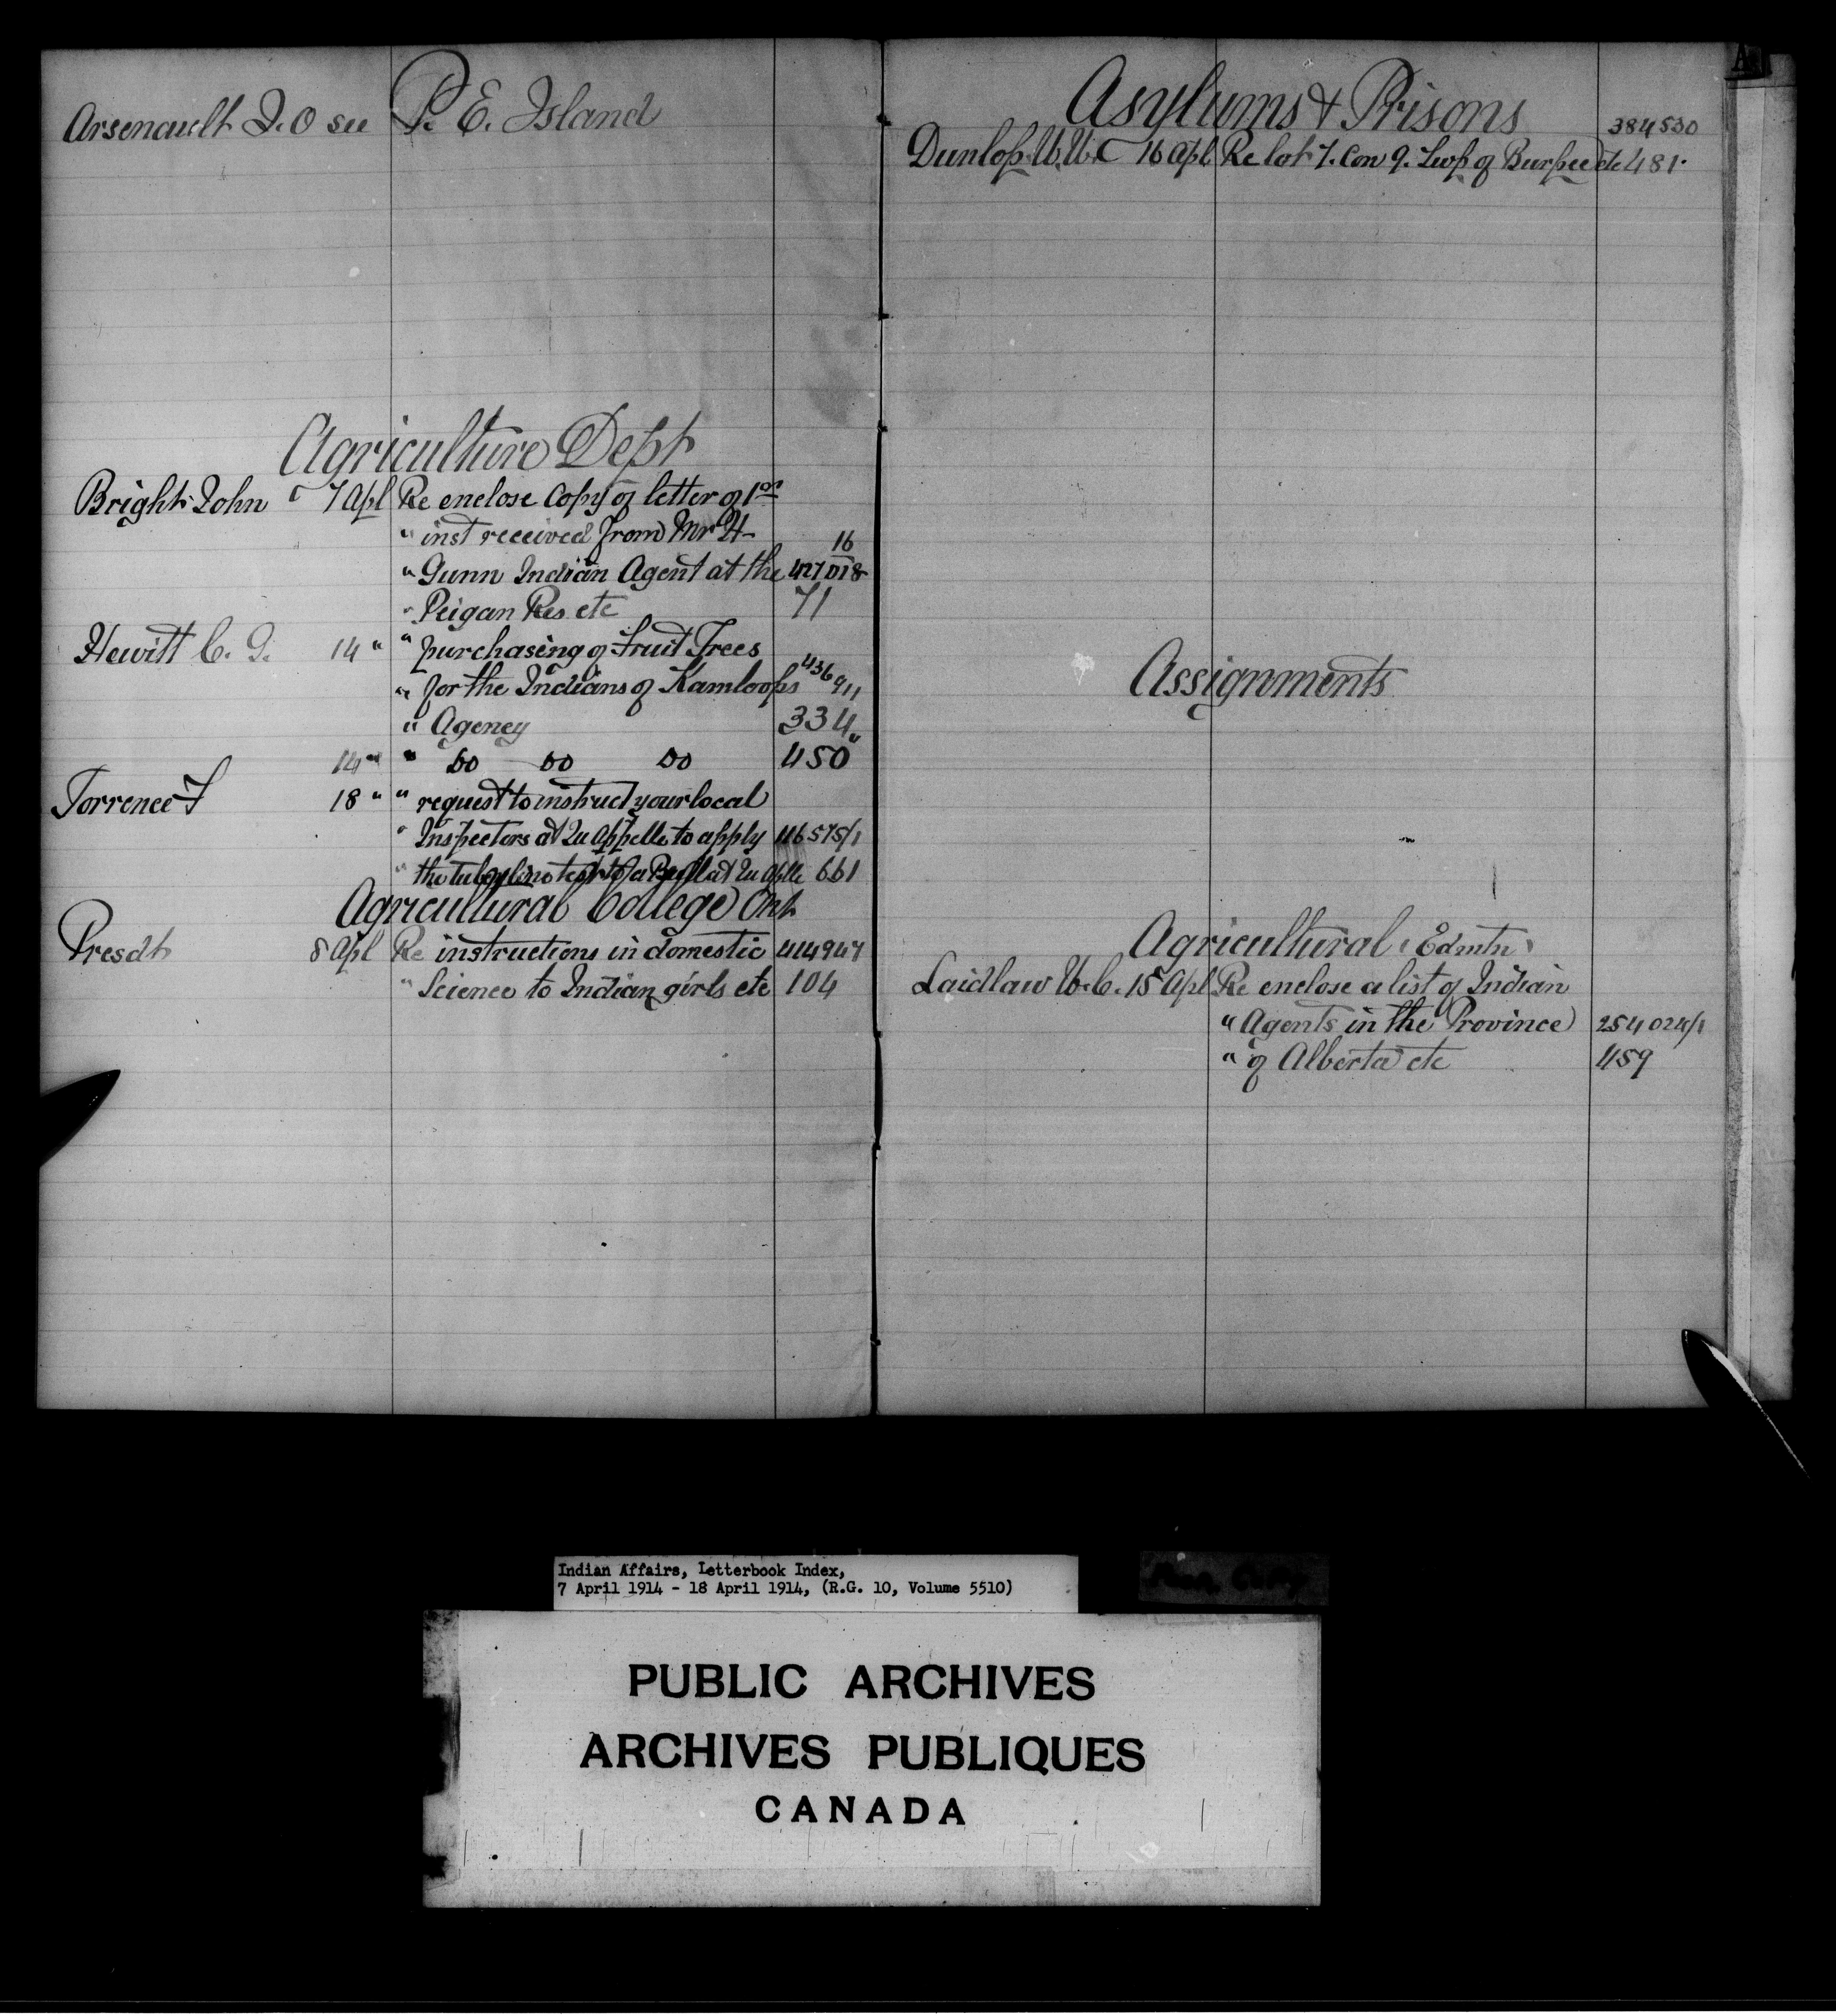 Arsenault J. O see P. E. Island
Agriculture Dept
Bright John 7 Apl Re enclose copy of letter of 1st
" inst received from Mr H-
16
" Gunn Indian Agent at the 427018
" Peigan Res etc 71
Hewitt C. G. 14 " " purchasing of Fruit Trees
" for the Indians of Kamloops 436911
" Agency 334
14 " " do do do 450
Torrence F 18 " " request to instruct your local
" Inspectors at Qu Appelle to apply 116575/1
" the tuberline test to a Bull at Qu Aplle 661
Agricultural College Ont
Presdt 8 Apl Re instructions in domestic 414947
" Science to Indian girls etc 104
A
Asylums & Prisons
384530
Dunlop 16 Apl Re lot 7. Con 9. Twp of Burpee etc 481.
Assignments
Agricultural (Edmtn)
Laidlaw W. C. 15 Apl Re enclose a list of Indian
" Agents in the Province 254024/1
" of Alberta etc 459
Indian Affairs, Letterbook Index,
7 April 1914 - 18 April 1914, (R.G. 10, Volume 5510)
PUBLIC ARCHIVES
ARCHIVES PUBLIQUES
CANADA